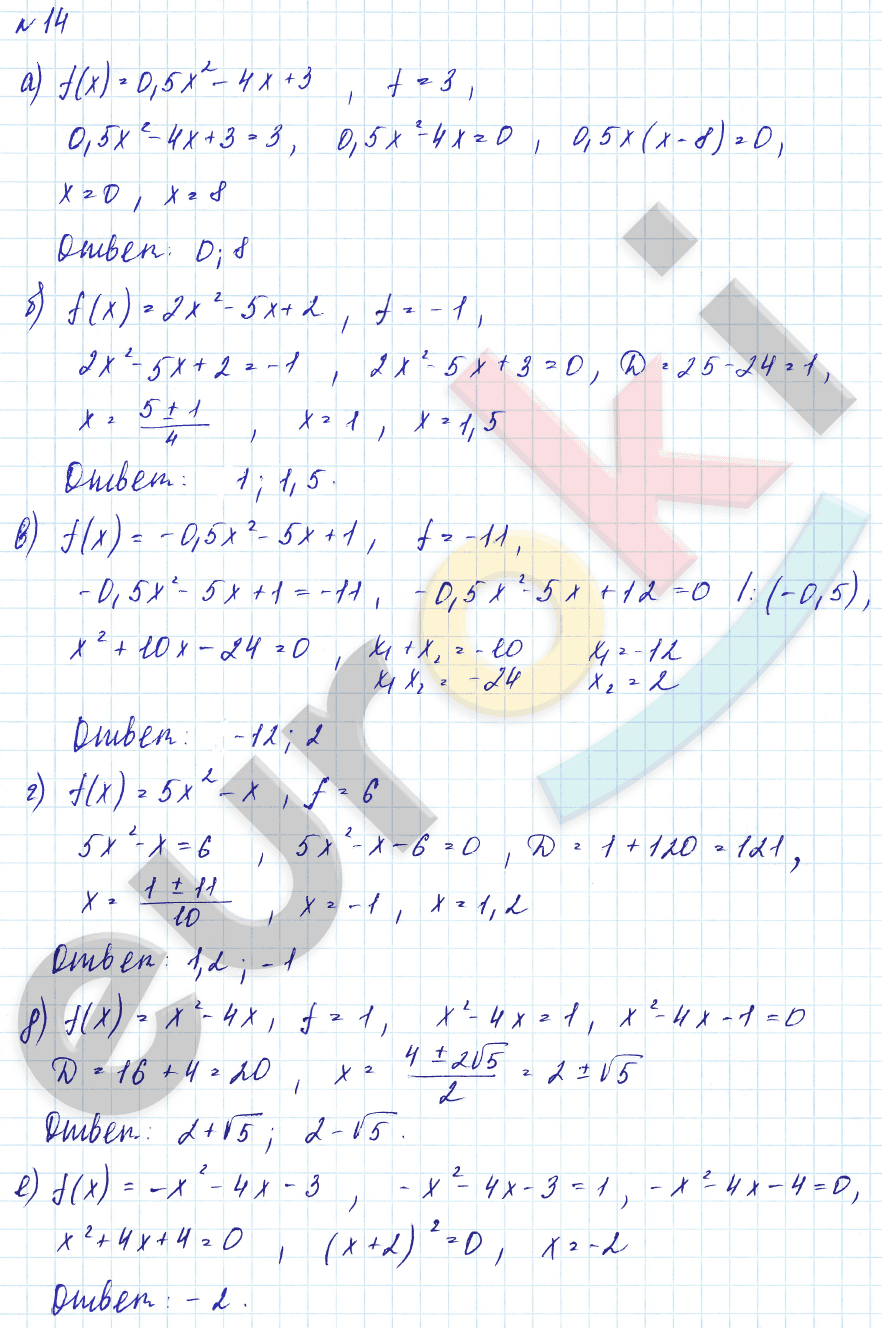 №14
а) f(x)=0,5x²-4x+3, f=3,
0,5x²-4x+3=3, 0,5x²-4x=0, 0,5x(x-8)=0,
x=0, x=8
Ответ: 0; 8
б) f(x)=2x²-5x+2, f=-1,
2x²-5x+2=-1, 2x²-5x+3=0, D=25-24=1,
x=(5±1)/4, x=1, x=1,5
Ответ: 1; 1,5.
в) f(x)=-0,5x²-5x+1, f=-11,
-0,5x²-5x+1=-11, -0,5x²-5x+12=0 /:(-0,5),
x²+10x-24=0, x₁+x₂=-10 x₁=-12
x₁x₂=-24 x₂=2
Ответ: -12; 2
г) f(x)=5x²-x, f=6
5x²-x=6, 5x²-x-6=0, D=1+120=121,
x=(1±11)/10, x=-1, x=1,2
Ответ: 1,2; -1
д) f(x)=x²-4x, f=1, x²-4x=1, x²-4x-1=0
D=16+4=20, x=(4±2√5)/2=2±√5
Ответ: 2+√5; 2-√5.
е) f(x)=-x²-4x-3, -x²-4x-3=1, -x²-4x-4=0,
x²+4x+4=0, (x+2)²=0, x=-2
Ответ: -2.
euroki